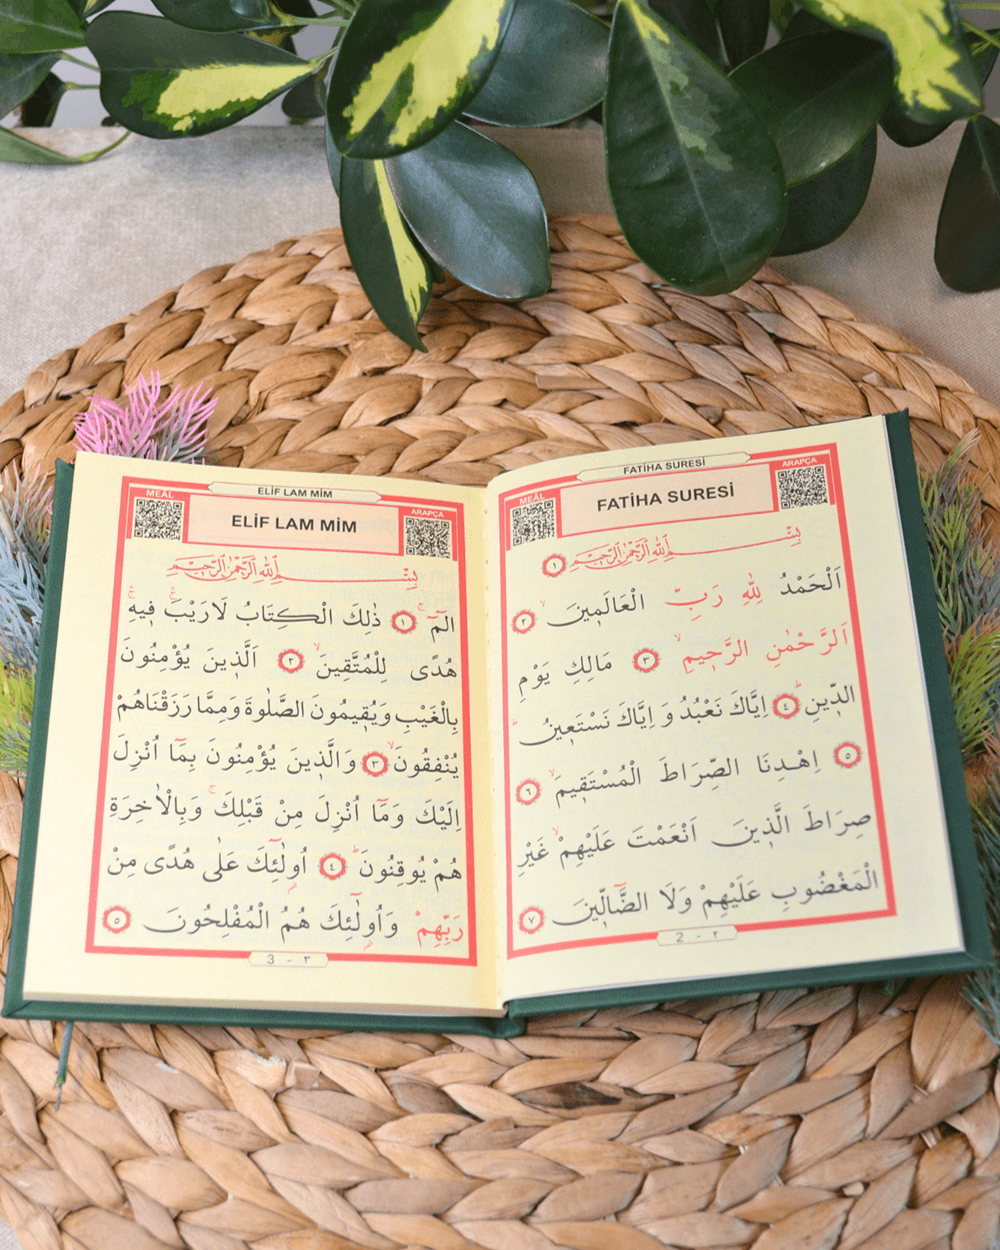 FATİHA SURESİ
MEÂL
FATİHA SURESİ
ARAPÇA
بِسْمِ اللهِ الرَّحْمٰنِ الرَّحِيمِ ١
اَلْحَمْدُ لِلّٰهِ رَبِّ الْعَالَمِينَ ۙ ٢
اَلرَّحْمٰنِ الرَّحِيمِ ۙ ٣ مَالِكِ يَوْمِ
الدِّينِ ۜ ٤ اِيَّاكَ نَعْبُدُ وَ اِيَّاكَ نَسْتَعِينُ ۜ
٥ اِهْدِنَا الصِّرَاطَ الْمُسْتَقِيمَ ۙ ٦
صِرَاطَ الَّذِينَ اَنْعَمْتَ عَلَيْهِمْ ۙ غَيْرِ
الْمَغْضُوبِ عَلَيْهِمْ وَلَا الضَّٓالِّينَ ٧
2 - ٢
ELİF LAM MİM
MEÂL
ELİF LAM MİM
ARAPÇA
بِسْمِ اللهِ الرَّحْمٰنِ الرَّحِيمِ
الٓمٓ ۚ ١ ذٰلِكَ الْكِتَابُ لَارَيْبَ ۚ فِيهِ ۚ
هُدًى لِلْمُتَّقِينَ ۙ ٢ اَلَّذِينَ يُؤْمِنُونَ
بِالْغَيْبِ وَيُقِيمُونَ الصَّلٰوةَ وَمِمَّا رَزَقْنَاهُمْ
يُنْفِقُونَ ۙ ٣ وَالَّذِينَ يُؤْمِنُونَ بِمَٓا اُنْزِلَ
اِلَيْكَ وَمَٓا اُنْزِلَ مِنْ قَبْلِكَ ۚ وَبِالْاٰخِرَةِ
هُمْ يُوقِنُونَ ۜ ٤ اُولٰٓئِكَ عَلٰى هُدًى مِنْ
رَبِّهِمْ وَاُولٰٓئِكَ هُمُ الْمُفْلِحُونَ ٥
3 - ٣